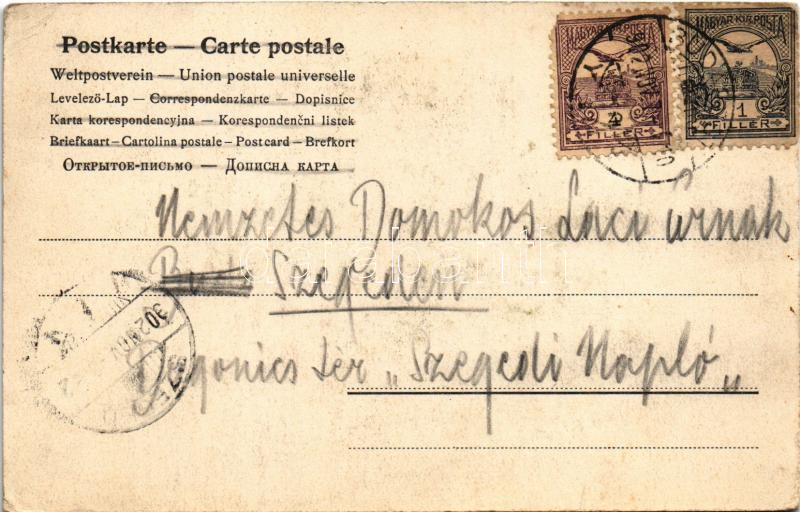 Postkarte — Carte postale
Weltpostverein — Union postale universelle
Levelező-Lap — Correspondenzkarte — Dopisnice
Karta korespondencyjna — Korespondenční listek
Briefkaart — Cartolina postale — Postcard — Brefkort
Открытое-письмо — Дописна карта
MAGYAR KIR. POSTA
FILLÉR
MAGYAR KIR. POSTA
1
FILLÉR
Nemzetes Domokos Laci úrnak
Szegeden
Dugonics tér „Szegedi Napló„
darabanth